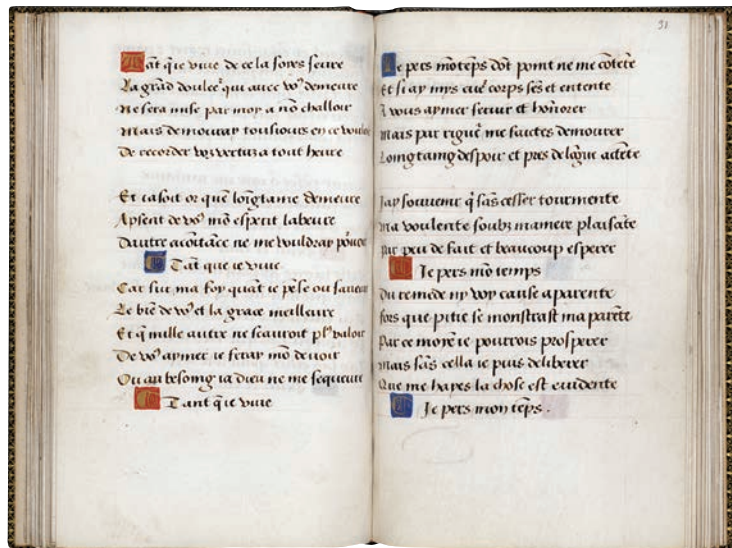 Tāt q̄ ie viue de ce la soyes seure
La grād doulce᷑ qui auec vo⁹ demeure
Ne sera mise par moy a nō challoir
Mais demouray tousiours en ce vouloir
De recorder voz vertuz a tout heure
Et cōbiē or que loīgtaine demeure
Apsent de vo⁹ mō esperit labeure
Dautre acoītāce ne me vouldray pouruoir
Tāt que ie viue
Car sur ma foy quāt ie pēse ou
Le biē de vo⁹ et la grace meilleure
Et q̄ mille autre ne scauroit pl⁹ valoir
De vo⁹ aymer ie feray mō deuoir
Ou au besoing ia dieu ne me sequeure
Tant q̄ ie viue
31
Ie pers mō tēps dōt point ne me cōtēte
Et si ay mys cue᷑ corps sēs et entente
A vous aymer seruir et honnorer
Mais par rigue᷑ me faictes demourer
Loingtaing despoir et pres de lōgue actēte
Iay souuenir q̄ sās cesser tourmente
Ma voulente soubz maniere plaisāte
Par peu de fait et beaucoup esperer
Ie pers mō temps
Du remede ny voy cause aparente
Fors que pitie se monstrast ma parēte
Par ce moyē ie pourrois prosperer
Mais sās cella ie puis deliberer
Que me hapes la chose est euidente
Ie pers mon tēps .